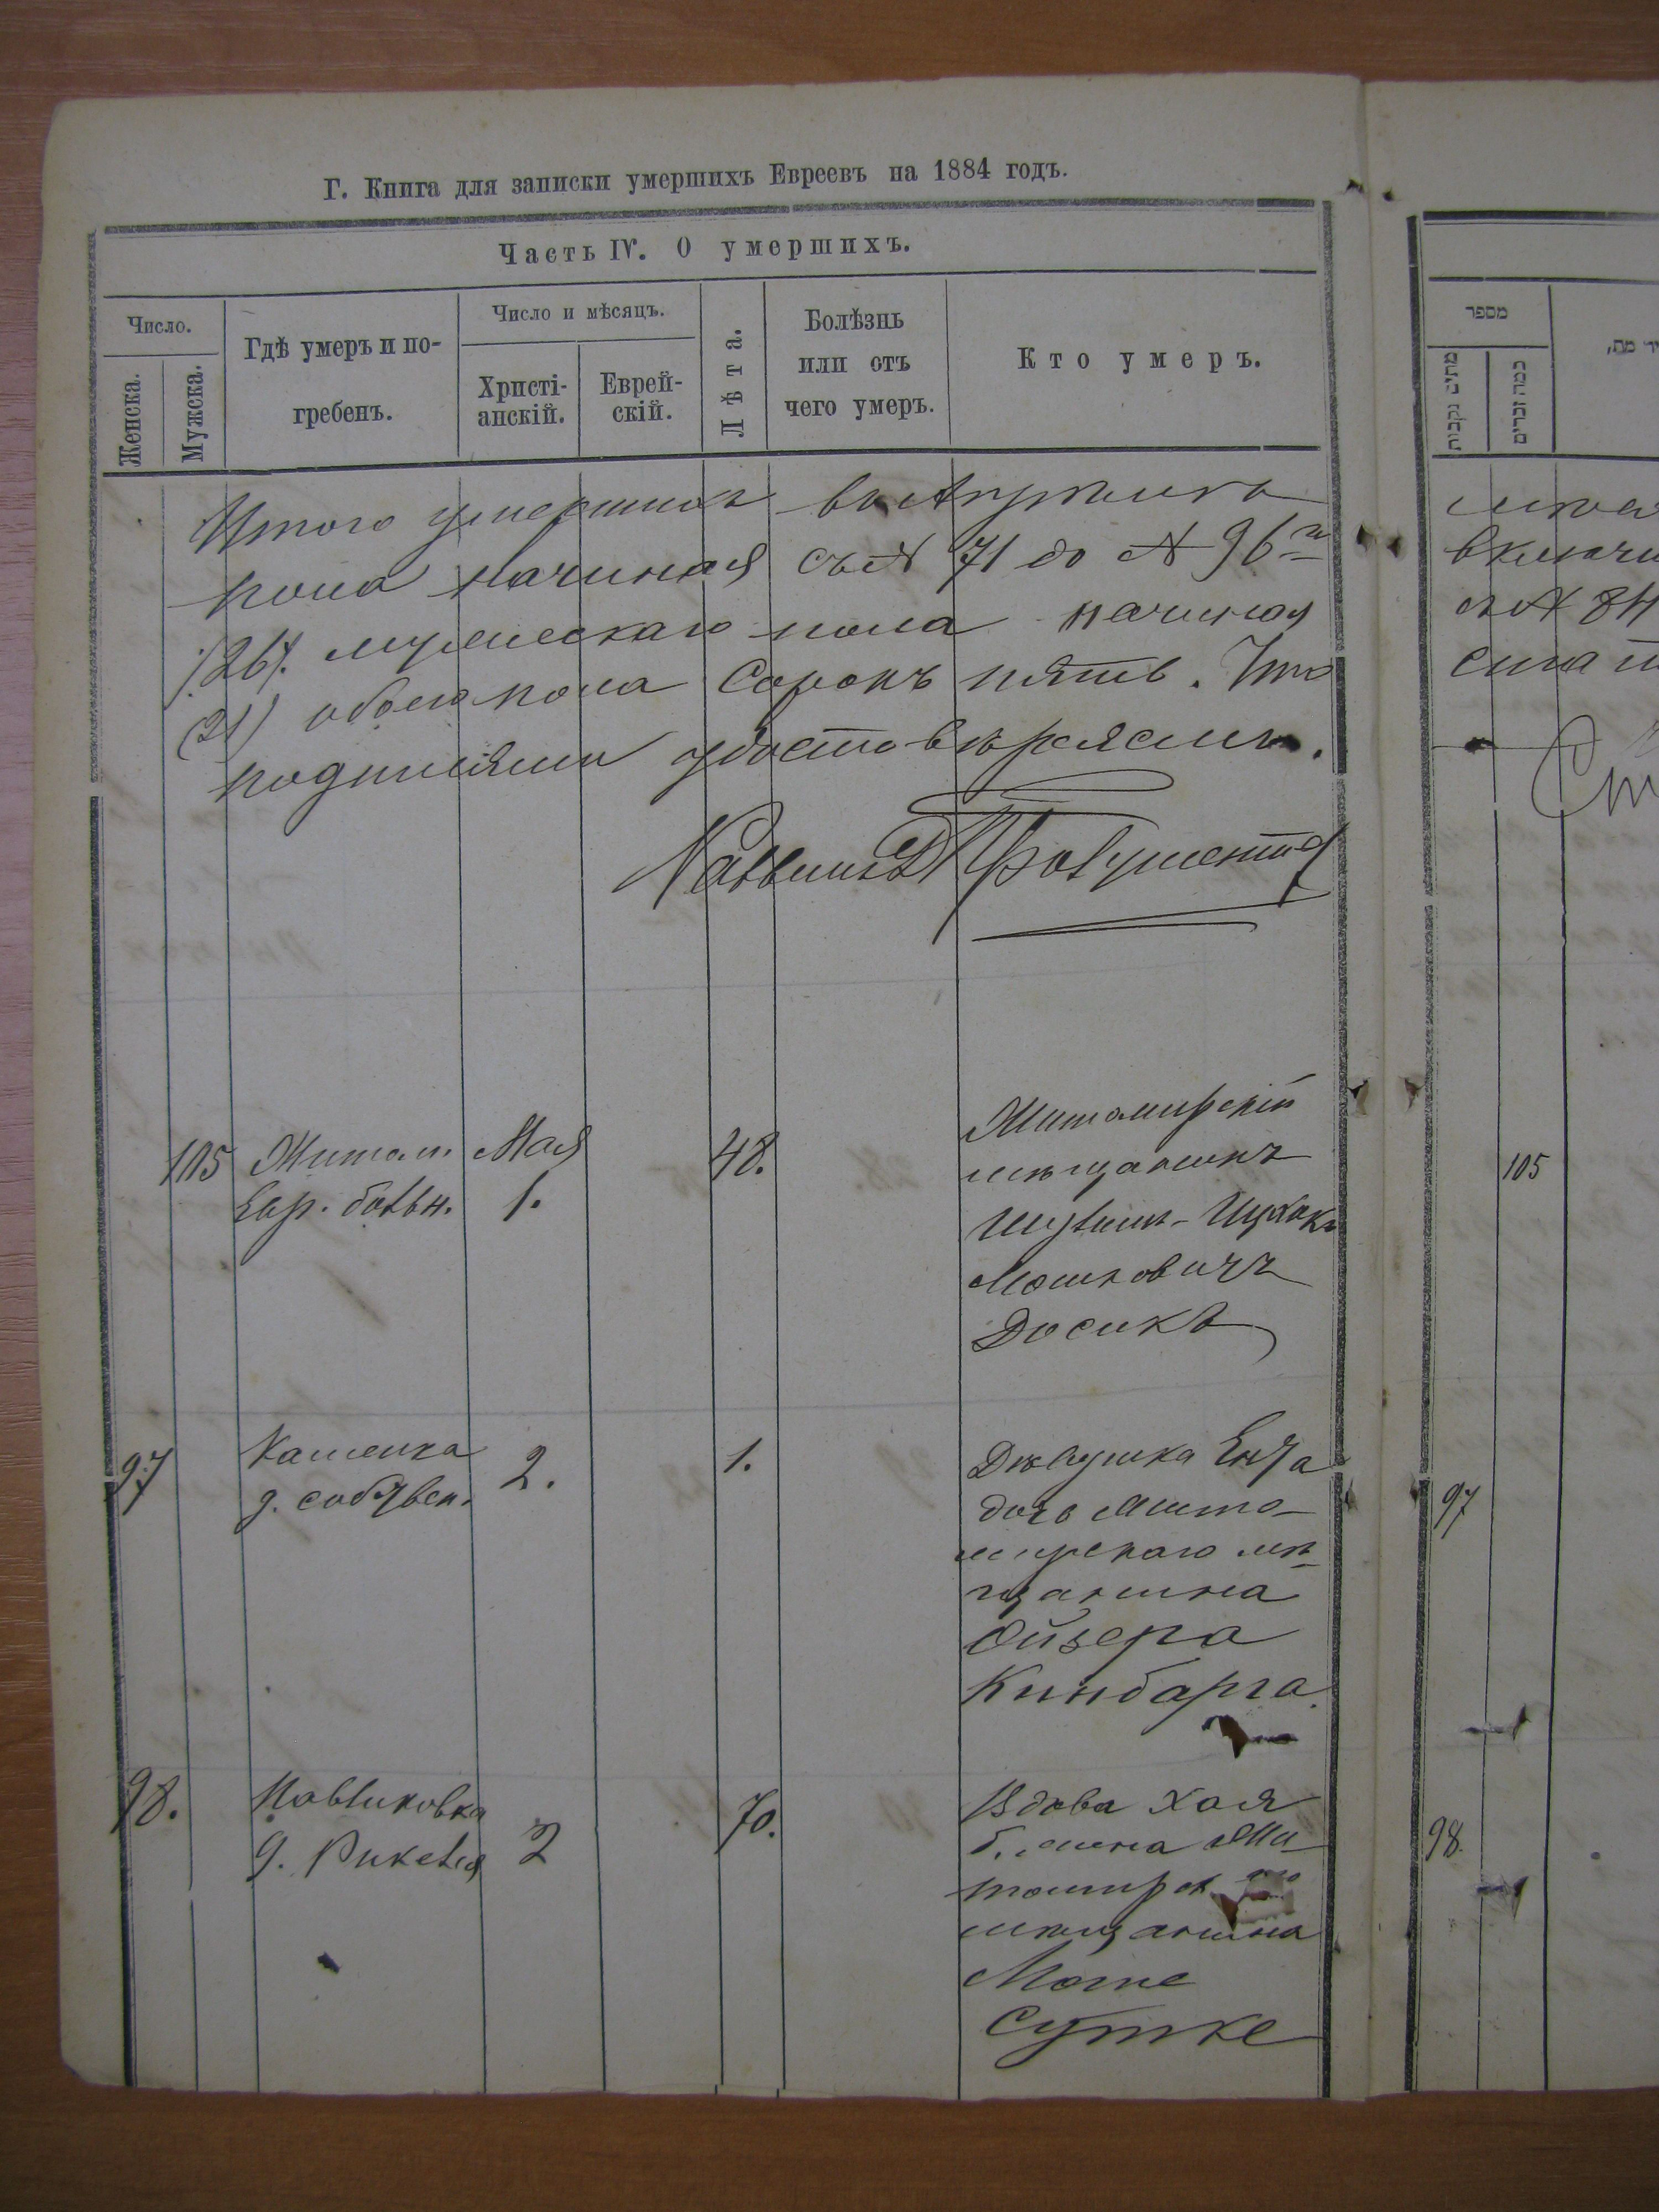 Г. Книга для записки умершихъ Евреевъ на 1884 годъ.
Часть IV. О умершихъ.
Число.
Женска.
Мужска.
Гдѣ умеръ и по-
гребенъ.
Число и мѣсяцъ.
Христі-
анскій.
Еврей-
скій.
Лѣта.
Болѣзнь
или отъ
чего умеръ.
Кто умеръ.
Итого умершихъ въ Апрѣлѣ
пола начиная съ № 71 до № 96
/26/. мужескаго пола начиная
(21) обоего пола Сорокъ пять. Что
подписями удостовѣряемъ.
Раввинъ
105
Житом.
Евр. больн.
Мая
1.
48.
Житомирскій
мѣщанинъ
Шулимъ-Ицхокъ
Мошковичъ
Досикъ
97
Каменка
д. собствен.
2.
1.
Дѣвушка Ента
дочь Жито-
мирскаго мѣ-
щанина
Ойзера
Кинбарга.
98.
Павликовка
д. Рикеля
2
70.
Вдова Хая
б. жена Жи-
томирск
мѣщанина
Мошке
Сутке
מספר
מתים נקבות
כמה זכרים
включи
№ 84
105
97
98.